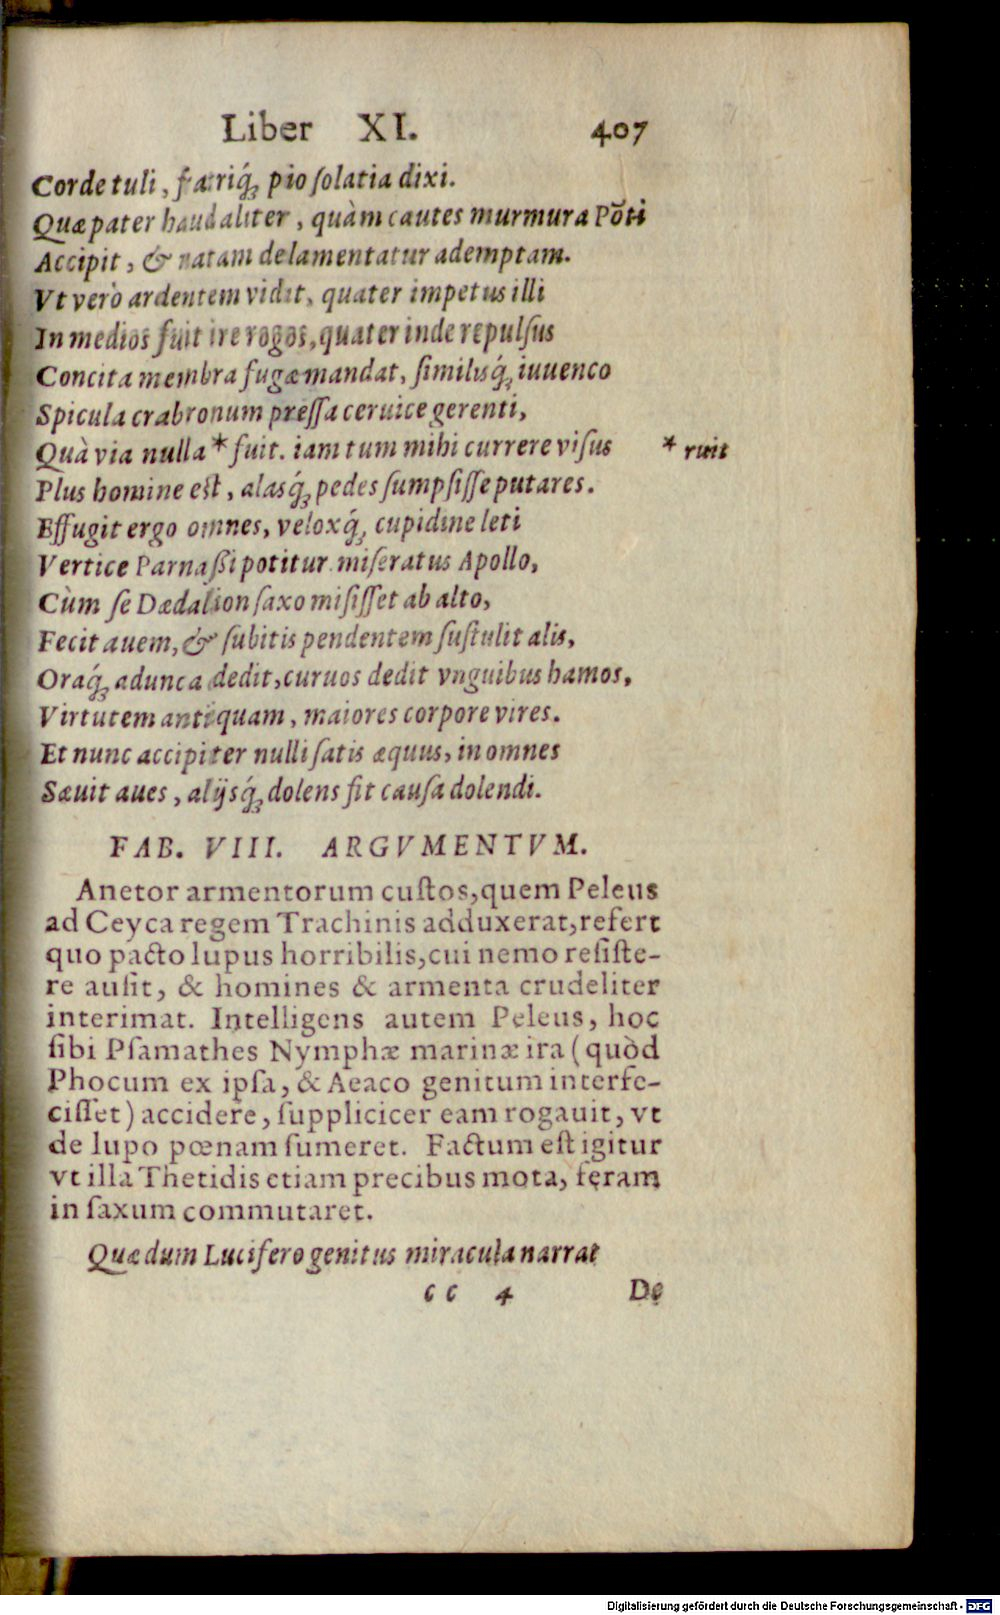 Liber XI. 407
Corde tuli, fratriq́; pio ſolatia dixi.
Quæ pater haud aliter, quàm cautes murmura Põti
Accipit, & natam delamentatur ademptam.
Vt verò ardentem vidit, quater impetus illi
In medios fuit ire rogos, quater inde repulſus
Concita membra fugæ mandat, ſimilisq́; iuuenco
Spicula crabronum preſſa ceruice gerenti,
Quà via nulla * fuit. iam tum mihi currere viſus * ruit
Plus homine est, alasq́; pedes ſumpſiſſe putares.
Effugit ergo omnes, veloxq́; cupidine leti
Vertice Parnaßi potitur. miſeratus Apollo,
Cùm ſe Dædalion ſaxo miſiſſet ab alto,
Fecit auem, & ſubitis pendentem ſuſtulit alis,
Oraq́; adunca dedit, curuos dedit vnguibus hamos,
Virtutem antiquam, maiores corpore vires.
Et nunc accipiter nulli ſatis æquus, in omnes
Sæuit aues, alijsq́; dolens fit cauſa dolendi.
FAB. VIII. ARGVMENTVM.
Anetor armentorum cuſtos, quem Peleus
ad Ceyca regem Trachinis adduxerat, refert
quo pacto lupus horribilis, cui nemo reſiſte-
re auſit, & homines & armenta crudeliter
interimat. Intelligens autem Peleus, hoc
ſibi Pſamathes Nymphæ marinæ ira (quòd
Phocum ex ipſa, & Aeaco genitum interfe-
ciſſet) accidere, ſuppliciter eam rogauit, vt
de lupo pœnam ſumeret. Factum eſt igitur
vt illa Thetidis etiam precibus mota, feram
in ſaxum commutaret.
Quæ dum Lucifero genitus miracula narrat
cc 4 De
Digitalisierung gefördert durch die Deutsche Forschungsgemeinschaft - DFG